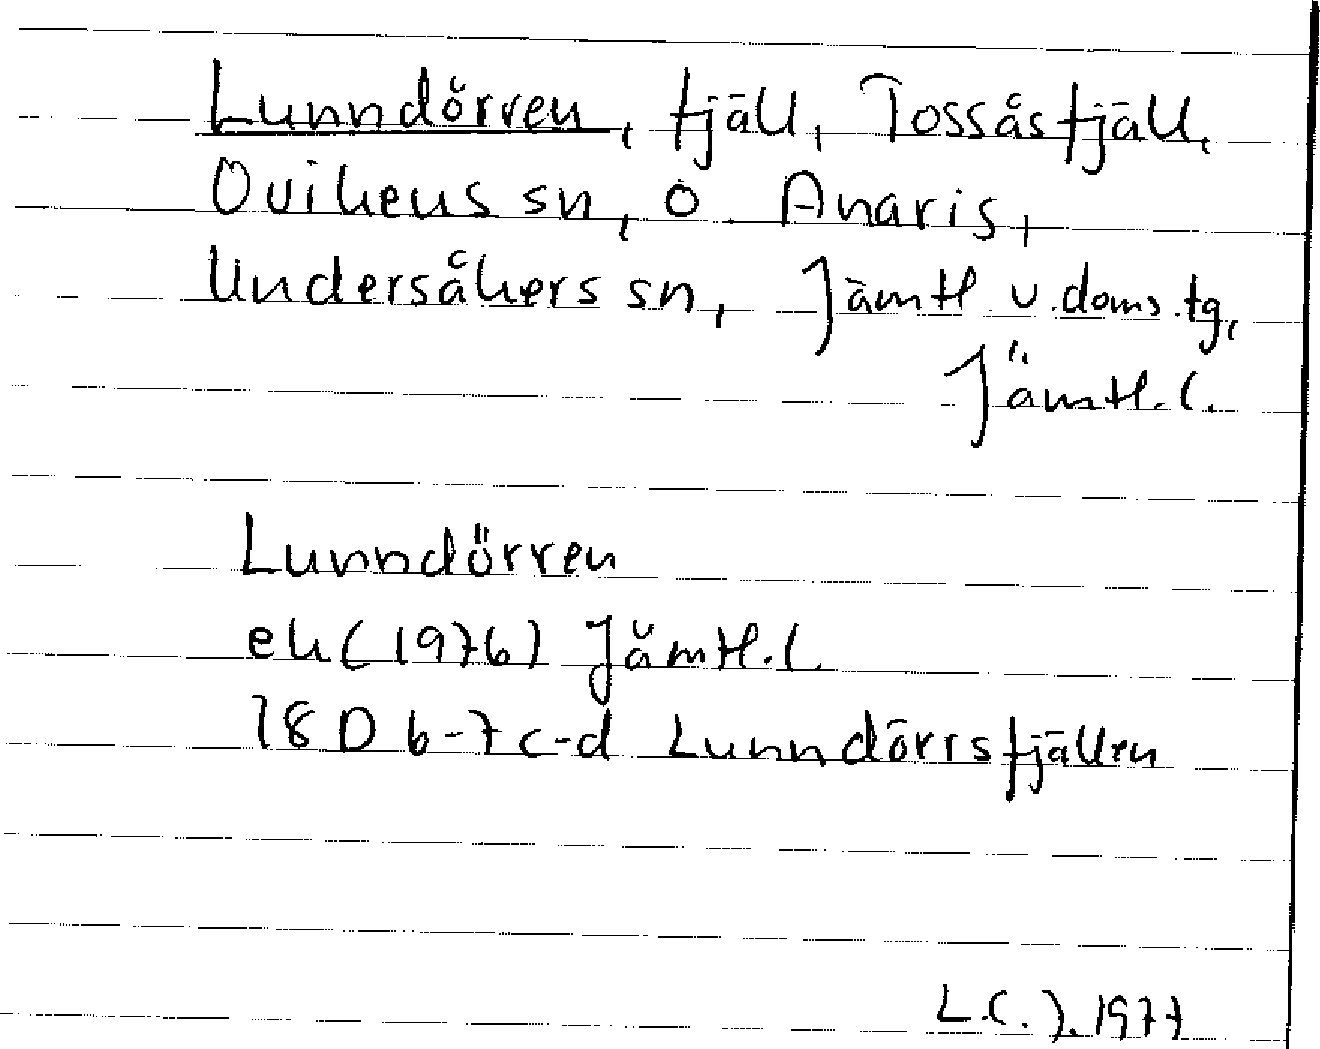 Lunndörren, fjäll, Tossåsfjäll,
Ovikens sn, o. Anaris,
Undersåkers sn, Jämtl. v. doms.tg,
Jämtl. l.
Lunndörren
ek (1976) Jämtl. l.
18D 6-7 c-d Lunndörrsfjällen
L.C.J. 1977